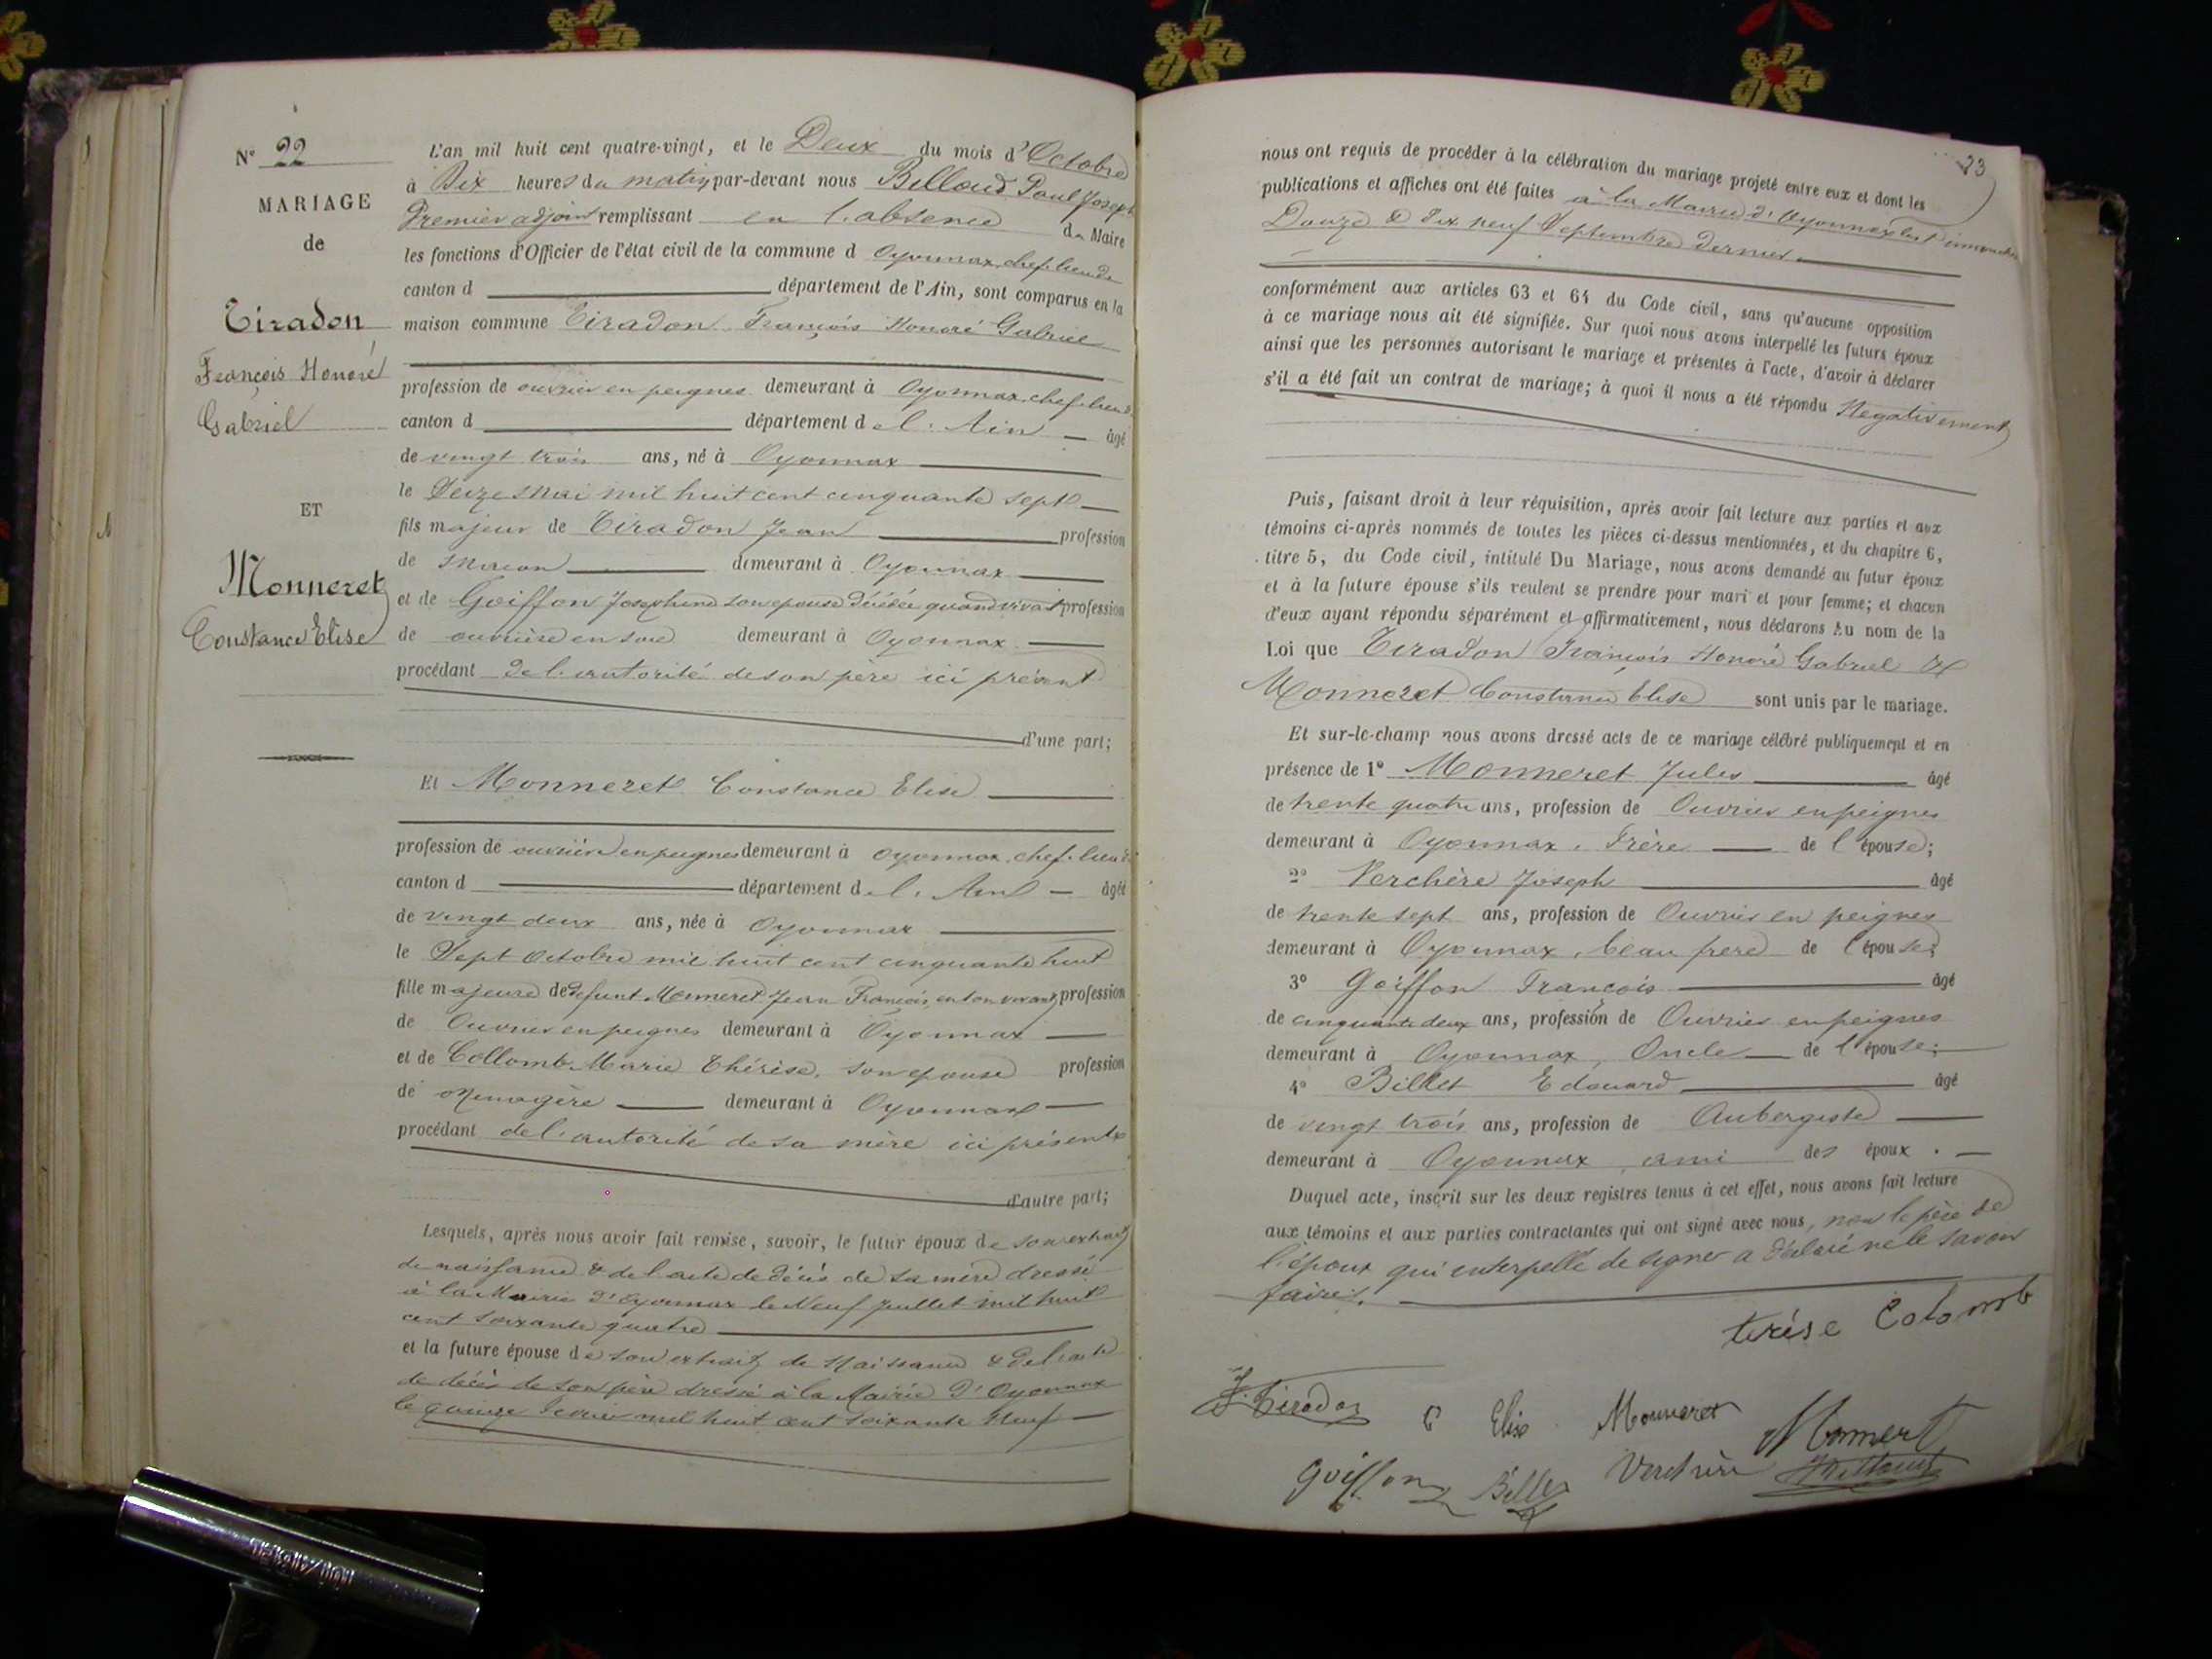 N° 22
MARIAGE
de
Tiradon
François Honoré
Gabriel
ET
Monneret
Constance Elise
L'an mil huit cent quatre-vingt, et le Deux du mois d'Octobre
à Dix heures du matin par-devant nous Billoud Paul Joseph
Premier adjoint remplissant en l'absence du Maire
les fonctions d'Officier de l'état civil de la commune d Oyonnax, chef-lieu de
canton d département de l'Ain, sont comparus en la
maison commune Tiradon François Honoré Gabriel
profession de ouvrier en peignes demeurant à Oyonnax, chef-lieu de
canton d département de l'Ain âgé
de vingt trois ans, né à Oyonnax
le Seize Mai mil huit cent cinquante sept
fils majeur de Tiradon Jean profession
de Maçon demeurant à Oyonnax
et de Goiffon Josephine son epouse décédée quand vivait profession
de ouvrière en soie demeurant à Oyonnax
procédant de l'autorité de son père ici présent
d'une part;
Et Monneret Constance Elise
profession de ouvrière en peignes demeurant à Oyonnax, chef-lieu de
canton d département de l'Ain âgée
de vingt deux ans, née à Oyonnax
le Sept Octobre mil huit cent cinquante huit
fille majeure de defunt Monneret Jean François, en son vivant profession
de Ouvrier en peignes demeurant à Oyonnax
et de Collomb Marie Thérèse, son epouse profession
de Menagère demeurant à Oyonnax
procédant de l'autorité de sa mère ici présente
d'autre part;
Lesquels, après nous avoir fait remise, savoir, le futur époux de son extrait
de naissance & de l'acte de décès de sa mère dressé
à la Mairie d'Oyonnax le Neuf Juillet mil huit
cent soixante quatre
et la future épouse de son extrait de Naissance & de l'acte
de décès de son père dressé à la Mairie d'Oyonnax
le quinze Fevrier mil huit cent soixante Neuf
23
nous ont requis de procéder à la célébration du mariage projeté entre eux et dont les
publications et affiches ont été faites à la Mairie d'Oyonnax les dimanches
Douze & Dix neuf Septembre dernier.
conformément aux articles 63 et 64 du Code civil, sans qu'aucune opposition
à ce mariage nous ait été signifiée. Sur quoi nous avons interpellé les futurs époux
ainsi que les personnes autorisant le mariage et présentes à l'acte, d'avoir à déclarer
s'il a été fait un contrat de mariage; à quoi il nous a été répondu Négativement
Puis, faisant droit à leur réquisition, après avoir fait lecture aux parties et aux
témoins ci-après nommés de toutes les pièces ci-dessus mentionnées, et du chapitre 6,
titre 5, du Code civil, intitulé Du Mariage, nous avons demandé au futur époux
et à la future épouse s'ils veulent se prendre pour mari et pour femme; et chacun
d'eux ayant répondu séparément et affirmativement, nous déclarons Au nom de la
Loi que Tiradon François Honoré Gabriel &
Monneret Constance Elise sont unis par le mariage.
Et sur-le-champ nous avons dressé acte de ce mariage célébré publiquement et en
présence de 1° Monneret Jules âgé
de trente quatre ans, profession de Ouvrier en peignes
demeurant à Oyonnax, Frère de l'épouse;
2° Verchère Joseph âgé
de trente sept ans, profession de Ouvrier en peignes
demeurant à Oyonnax, beau frere de l'épouse;
3° Goiffon François âgé
de cinquante deux ans, profession de Ouvrier en peignes
demeurant à Oyonnax, Oncle de l'épouse;
4° Billet Edouard âgé
de vingt trois ans, profession de Aubergiste
demeurant à Oyonnax, ami des époux.
Duquel acte, inscrit sur les deux registres tenus à cet effet, nous avons fait lecture
aux témoins et aux parties contractantes qui ont signé avec nous, non le père de
l'époux qui interpellé de signer a déclaré ne le savoir
faire.
terése Colomb
F. Tiradon C Elise Monneret Monneret
Goiffon Billet Verchère Billoud